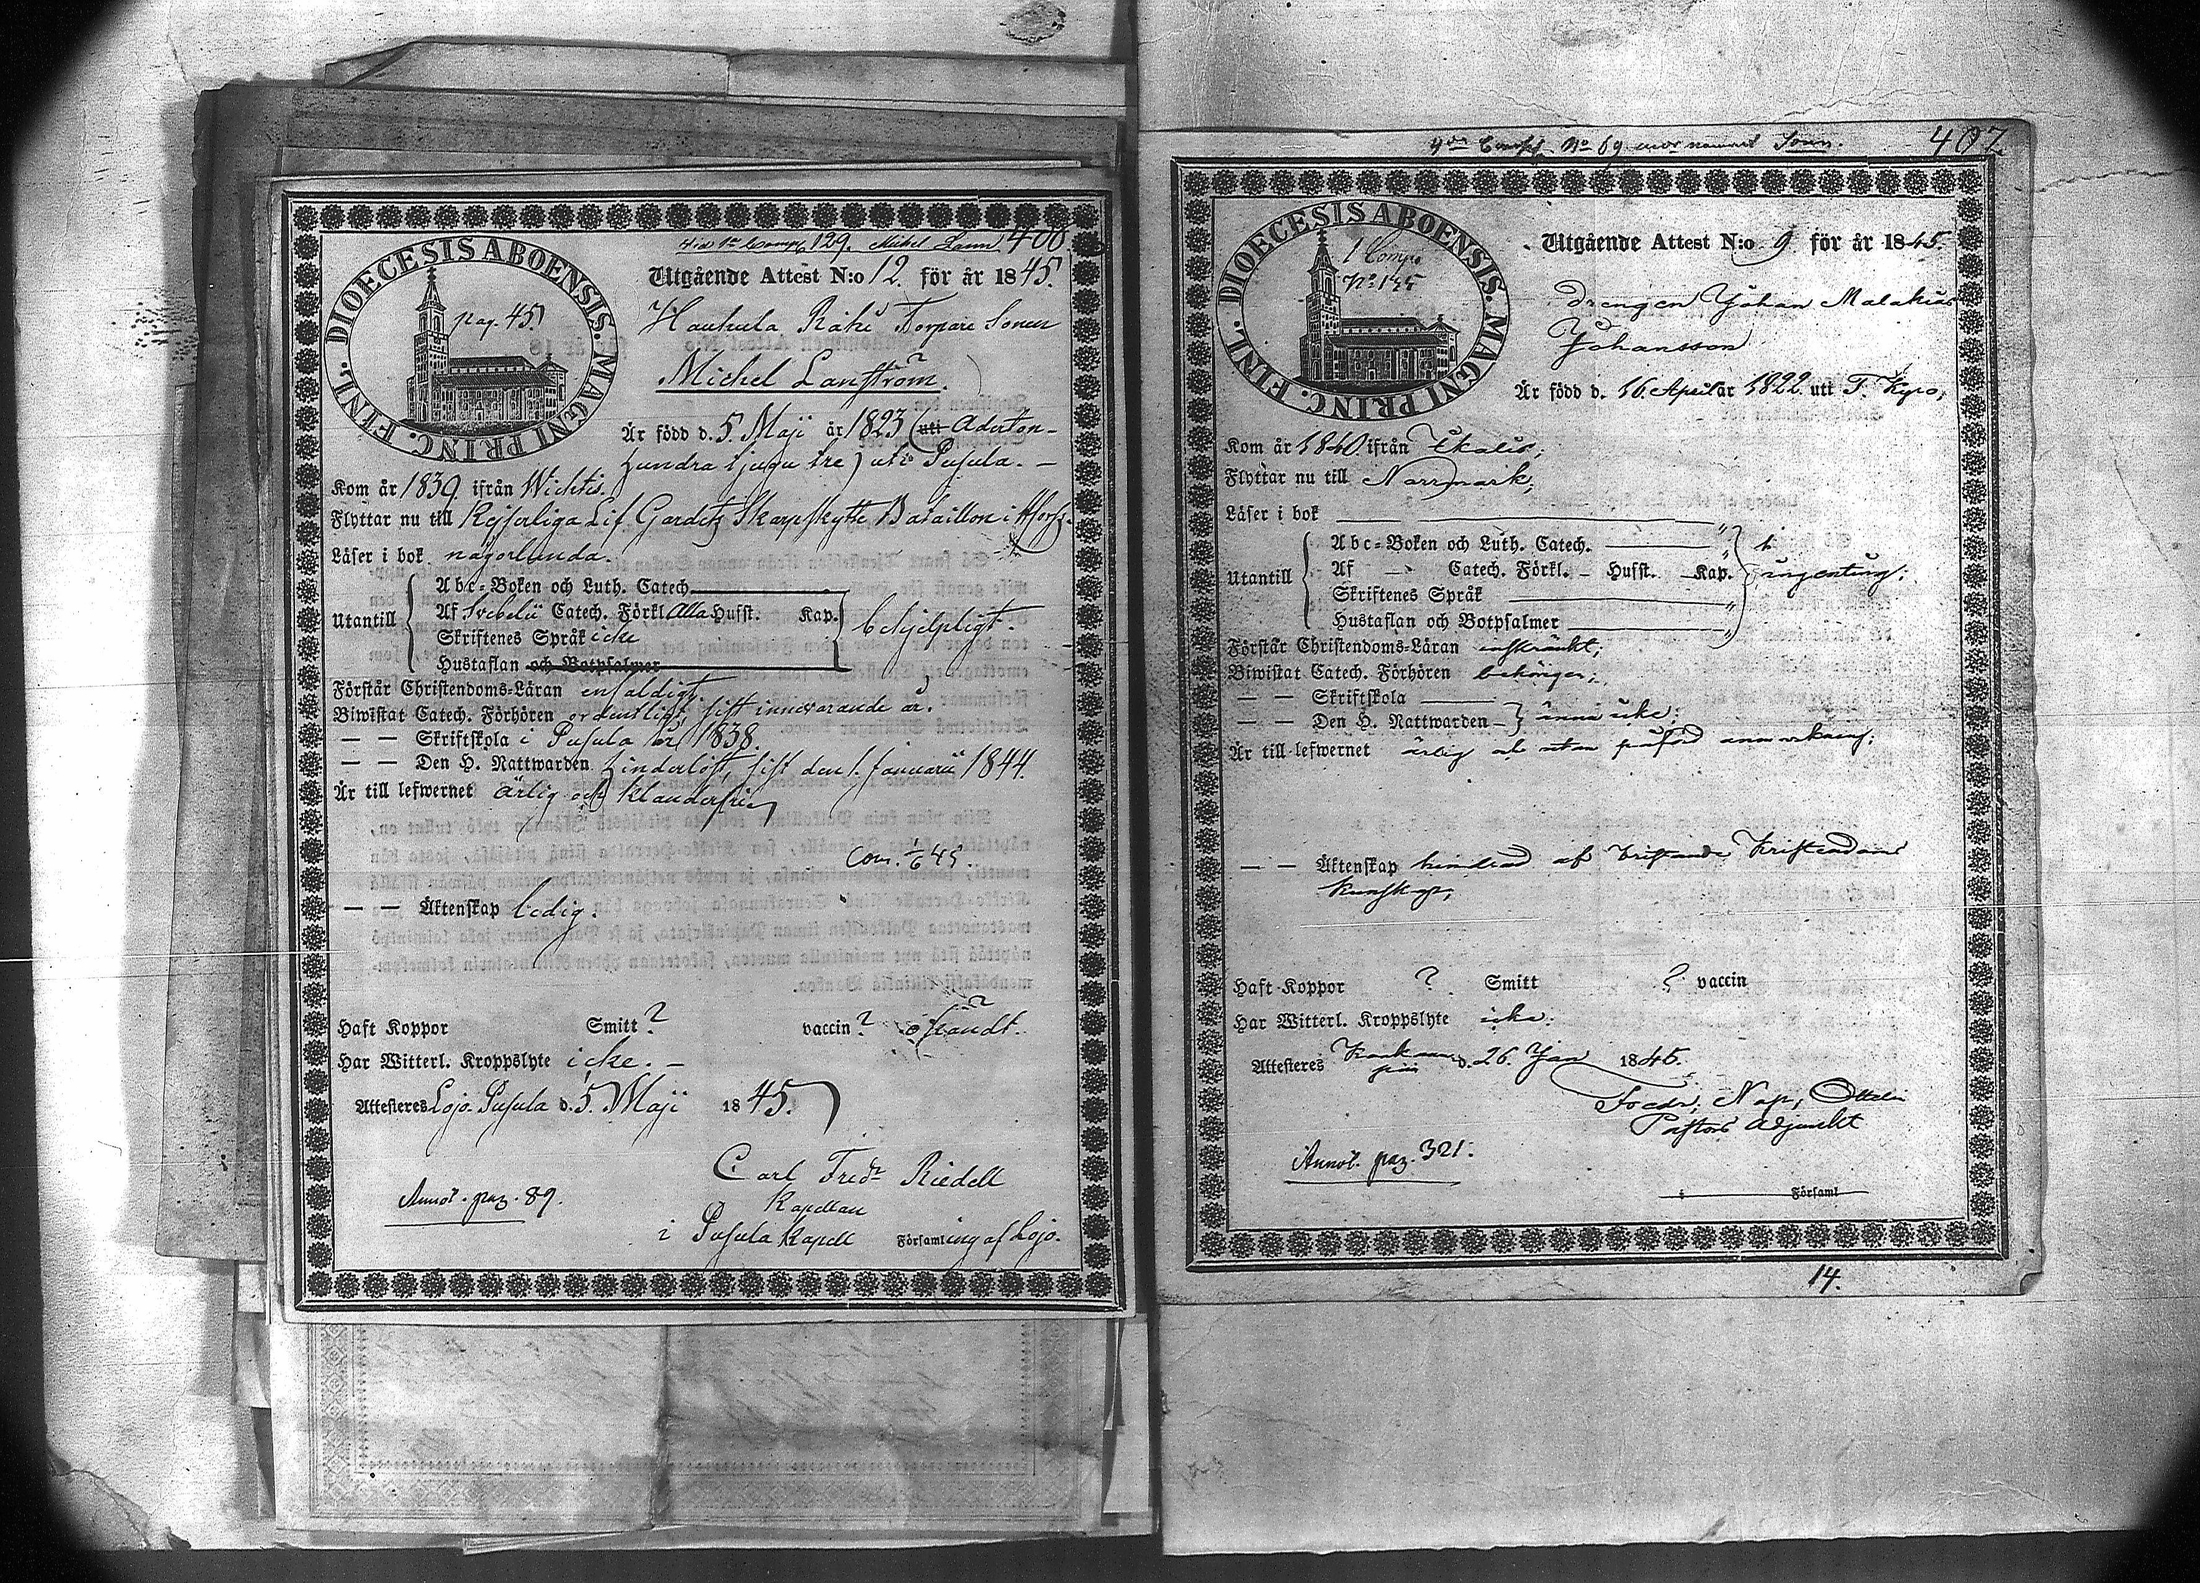 408
129. Michel Lann
DIOECESIS ABOENSIS. MAGNI PRINC. FINL.
pag. 45.
Utgående Attest N:o 12. för år 1845.
Torpare Sonen
Michel Lanström.
Är född d. 5. Maji år 1823 (uti Aderton-
hundra tjugu tre) uti Pusula. —
Kom år 1839. ifrån Wichtis.
Flyttar nu till Kejserliga Lif Gardets Skarpskytte Bataillon i Hforss.
Läser i bok någorlunda.
Utantill
Abc-Boken och Luth. Catech.
Af Svebelii Catech. Förkl. Alla Husst. Kap.
Skriftenes Språk icke
Hustaflan och Botpsalmer
behjelpligt.
Förstår Christendoms-Läran enfaldigt.
Biwistat Catech. Förhören ordentligt, sist innevarande år.
— — Skriftskola i Pusula år 1838.
— — Den H. Nattwarden hinderlöst, sist den 1. Januarii 1844.
Är till lefwernet ärlig och klanderfri
Com. 1/6 45
— — Äktenskap ledig.
Haft Koppor Smitt ? vaccin ?
Har Witterl. Kroppslyte icke. —
Attesteres Lojo Pusula d. 5. Maji 1845.
Carl Fredr Riedell
Kapellan
i Pusula Kapell Församling af Lojo.
Annot. pag. 89.
407
N:o 69
DIOECESIS ABOENSIS. MAGNI PRINC. FINL.
1 Comp.
Utgående Attest N:o 9 för år 1845.
Drengen Johan Malakias
Johansson
Är född d. 16 April år 1822 uti T. Kyro,
Kom år 1840 ifrån Ikalis,
Flyttar nu till Norrmark,
Läser i bok
Utantill
Abc-Boken och Luth. Catech.
Af — Catech. Förkl. — Husst. — Kap.
Skriftenes Språk
Hustaflan och Botpsalmer
ingenting;
Förstår Christendoms-Läran inskränkt;
Biwistat Catech. Förhören behörigen;
— — Skriftskola
— — Den H. Nattwarden
ännu icke;
Är till lefwernet ärlig och utan påförd anmärkning.
— — Äktenskap hindrad af bristande Kristendoms
kunskap,
Haft Koppor ? Smitt ? vaccin
Har Witterl. Kroppslyte icke.
Attesteres d. 26 Jan 1845.
Pastors Adjunckt
Annot. pag. 321.
i Församl
14.